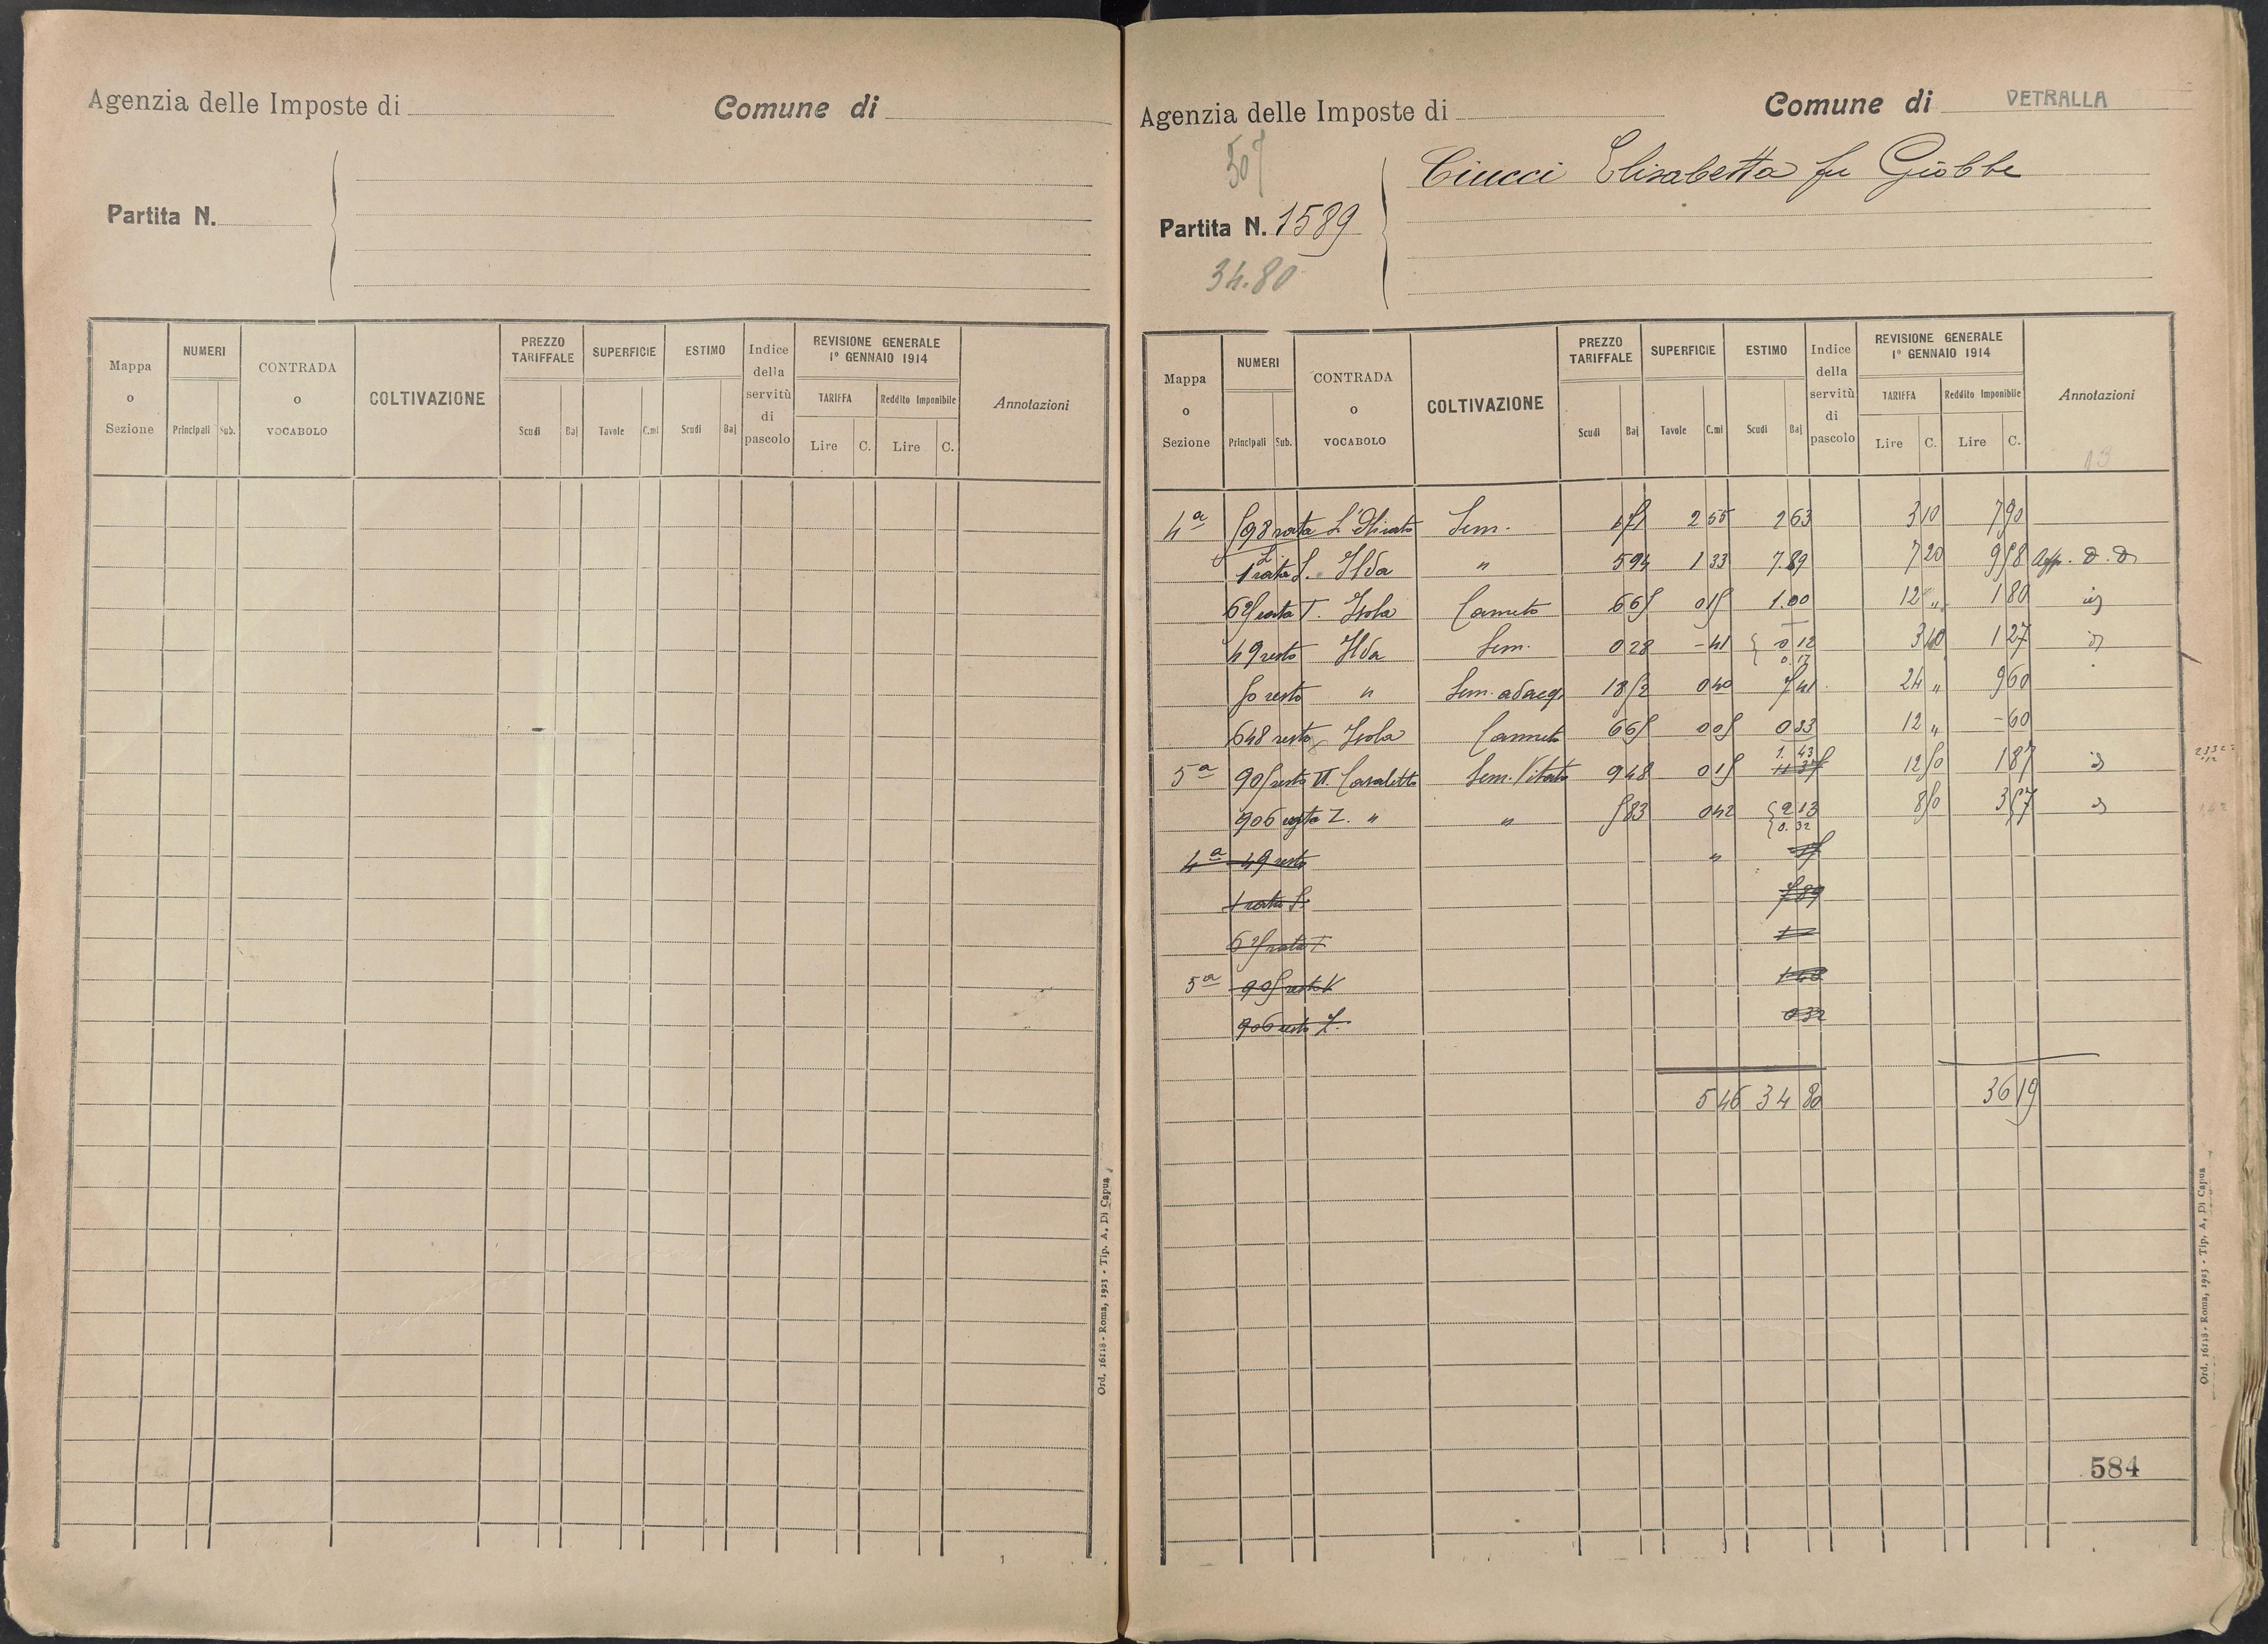 Agenzia delle Imposte di
Comune di
Partita N.
Mappa o Sezione
NUMERI
Principali Sub.
CONTRADA o VOCABOLO
COLTIVAZIONE
PREZZO TARIFFALE
Scudi Baj
SUPERFICIE
Tavole C.mi
ESTIMO
Scudi Baj
Indice della servitù di pascolo
REVISIONE GENERALE 1º GENNAIO 1914
TARIFFA
Lire C.
Reddito Imponibile
Lire C.
Annotazioni
Ord. 16118 - Roma, 1923 - Tip. A. Di Capua
Agenzia delle Imposte di
Comune di VETRALLA
507
Ciucci Elisabetta fu Giobbe
Partita N. 1589
34.80
Mappa o Sezione
NUMERI
Principali Sub.
CONTRADA o VOCABOLO
COLTIVAZIONE
PREZZO TARIFFALE
Scudi Baj
SUPERFICIE
Tavole C.mi
ESTIMO
Scudi Baj
Indice della servitù di pascolo
REVISIONE GENERALE 1º GENNAIO 1914
TARIFFA
Lire C.
Reddito Imponibile
Lire C.
Annotazioni
13
4a 598 rata Sem. 2 55 2 63 3 10 7 90
1 rata S. " 5 94 1 33 7.89 7 20 9 58
625 rata T. Isola Canneto 6 65 0 15 1.00 12 " 1 80 id
49 resto Sem. 0 28 - 41 0 12 3 10 1 27 id
0.17
50 resto " Sem. adacq. 18 52 0 40 7 41 24 " 9 60
648 resto Isola Canneto 6 65 0 05 0 33 12 " - 60
1. 43
5a 905 resto Casaletto Sem. Vitato 9 48 0 15 12 50 1 87 id
906 resto Z. " " 5 83 0 42 2 13 8 50 3 57 id
0. 32
4a 49 resto " 17
1 rata S. 7 89
625 rata T 1 —
5a 905 resto V
906 resto Z. 0 32
5 46 34 80 36 19
584
Ord. 16118 - Roma, 1923 - Tip. A. Di Capua